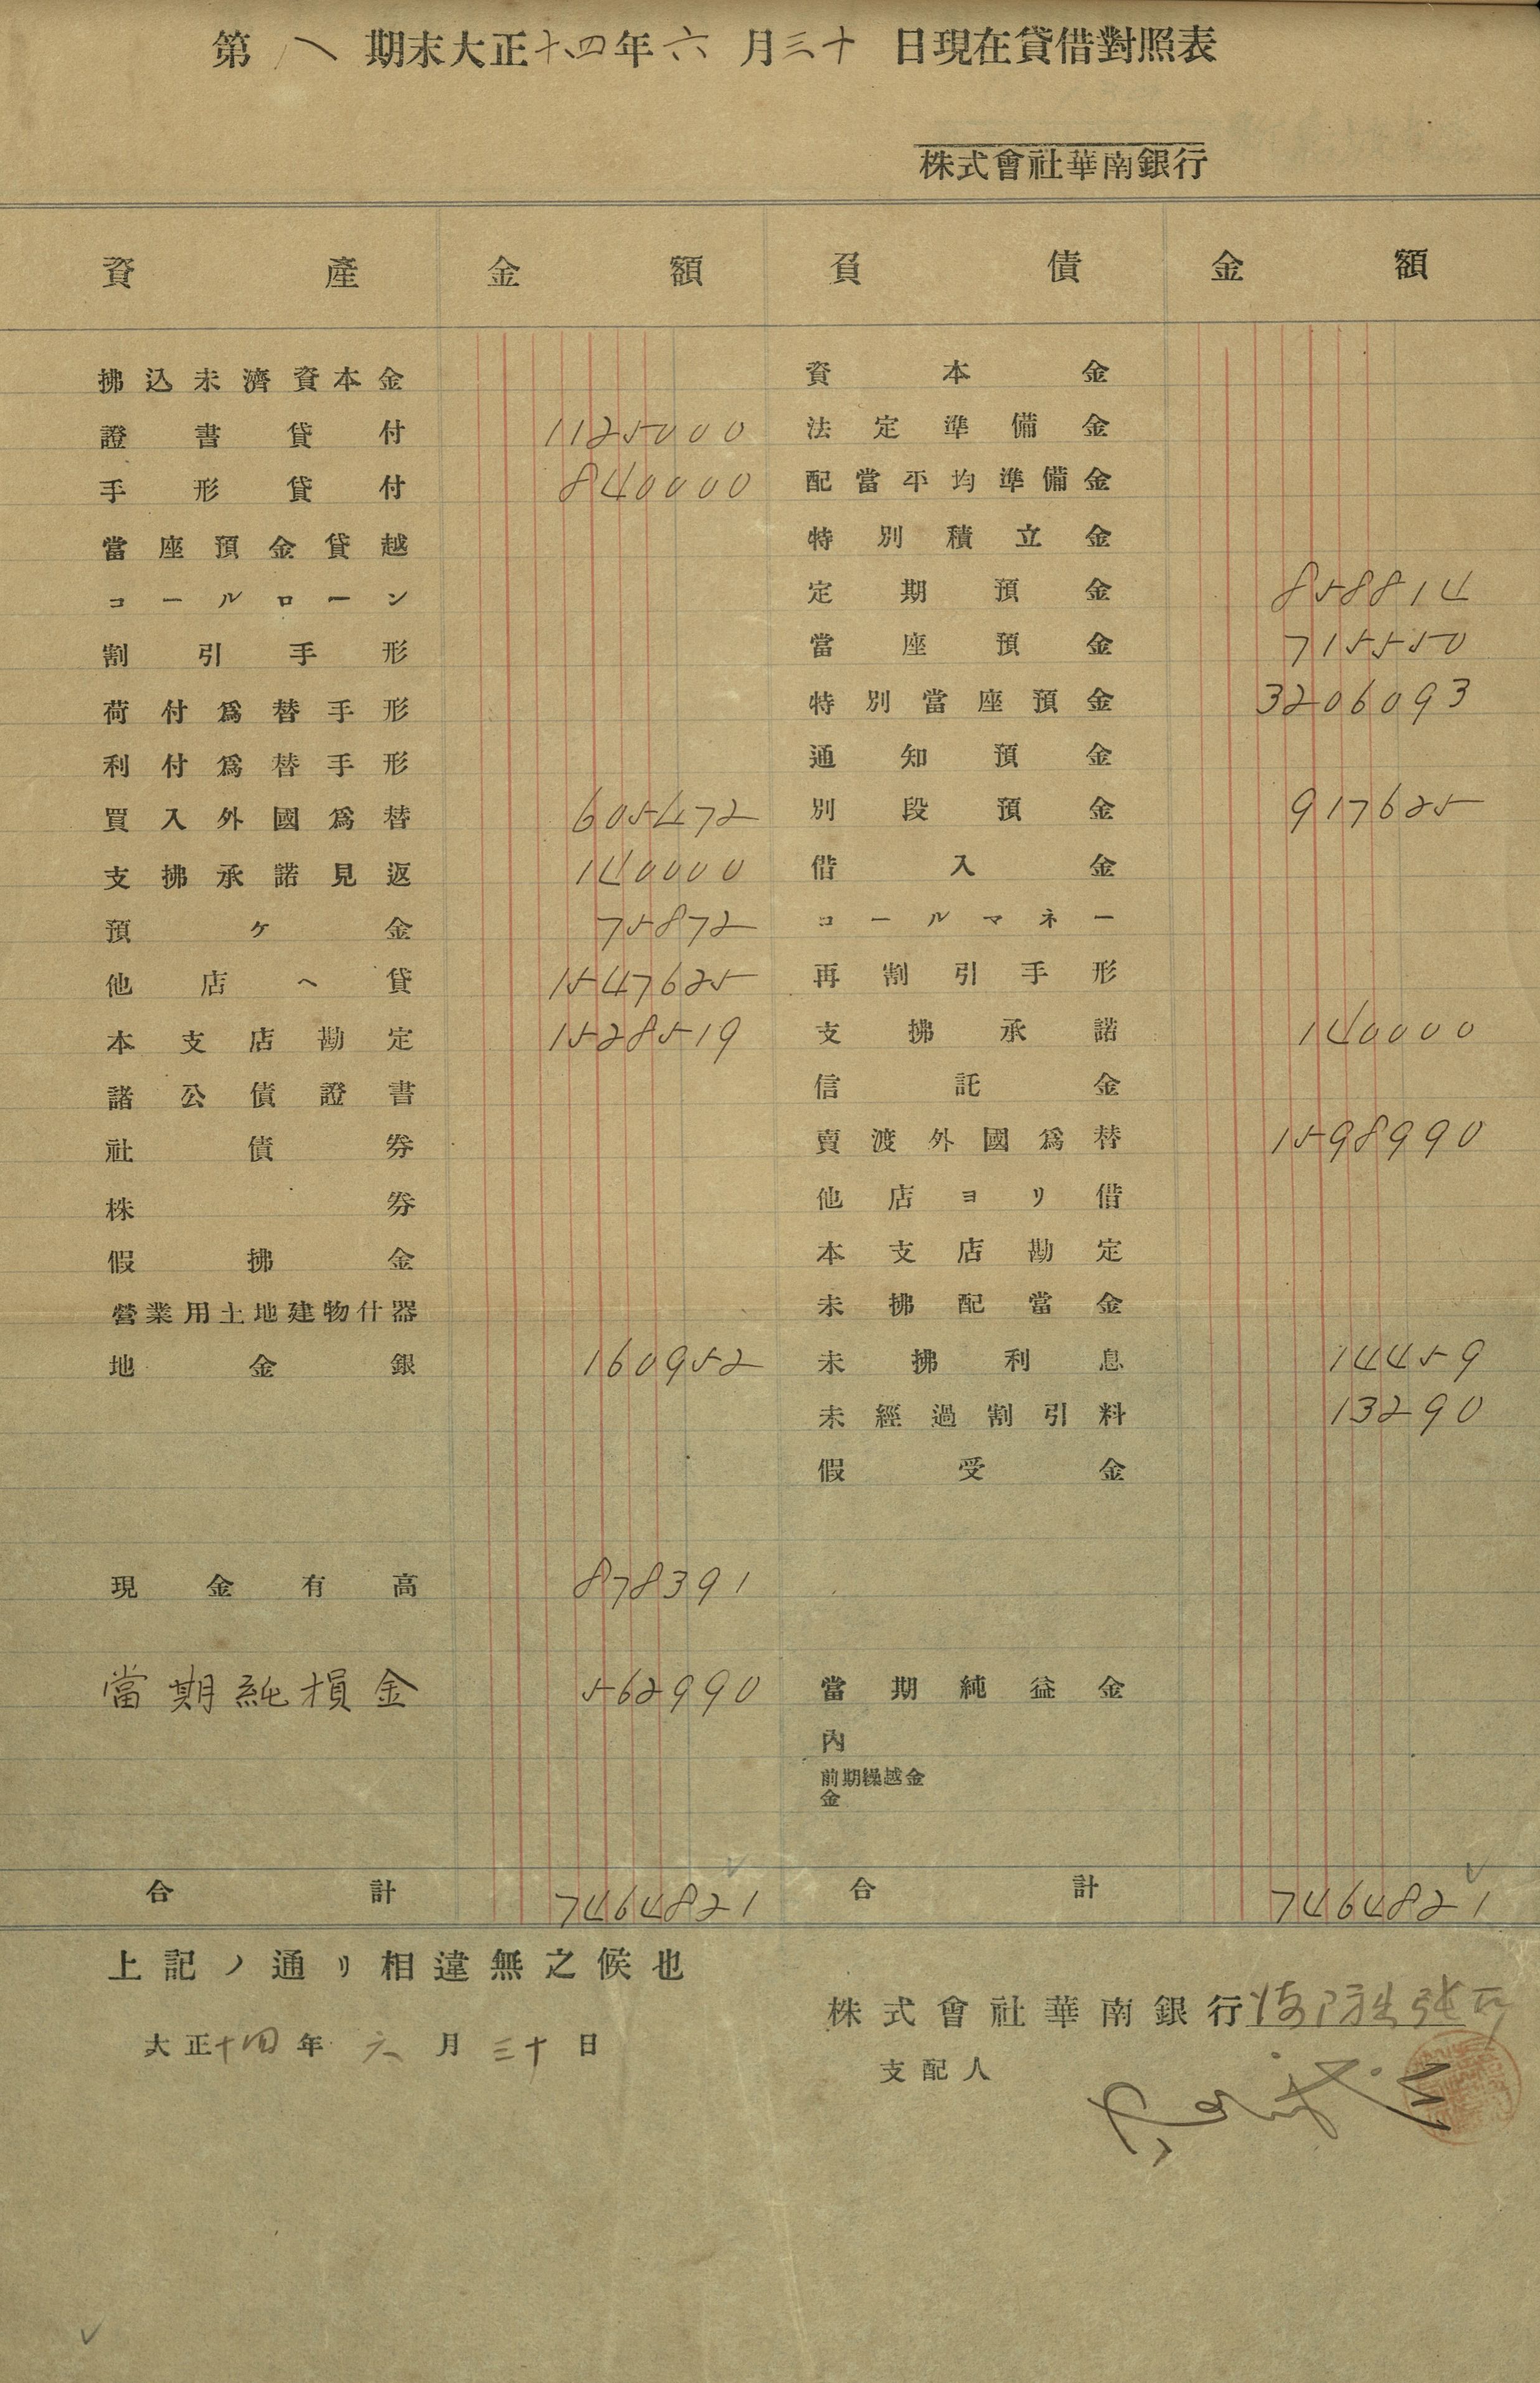 第八期末大正十四年六月三十日現在貸借對照表
株式會社華南銀行
資產 金額 負債 金額
拂込未濟資本金 資本金
證書貸付 1125000 法定準備金
手形貸付 840000 配當平均準備金
當座預金貸越 特別積立金
コールローン 定期預金 858814
割引手形 當座預金 715550
荷付爲替手形 特別當座預金 3206093
利付爲替手形 通知預金
買入外國爲替 605472 別段預金 917625
支拂承諾見返 140000 借入金
預ケ金 75872 コールマネー
他店へ貸 1547625 再割引手形
本支店勘定 1528519 支拂承諾 140000
諸公債證書 信託金
社債券 賣渡外國爲替 1598990
株券 他店ヨリ借
假拂金 本支店勘定
營業用土地建物什器 未拂配當金
地金銀 160952 未拂利息 14459
未經過割引料 13290
假受金
現金有高 878391
當期純損金 562990 當期純益金
內
前期繰越金
金
合計 7464821 合計 7464821
上記ノ通リ相違無之候也
大正十四年六月三十日
株式會社華南銀行海防出張所
支配人